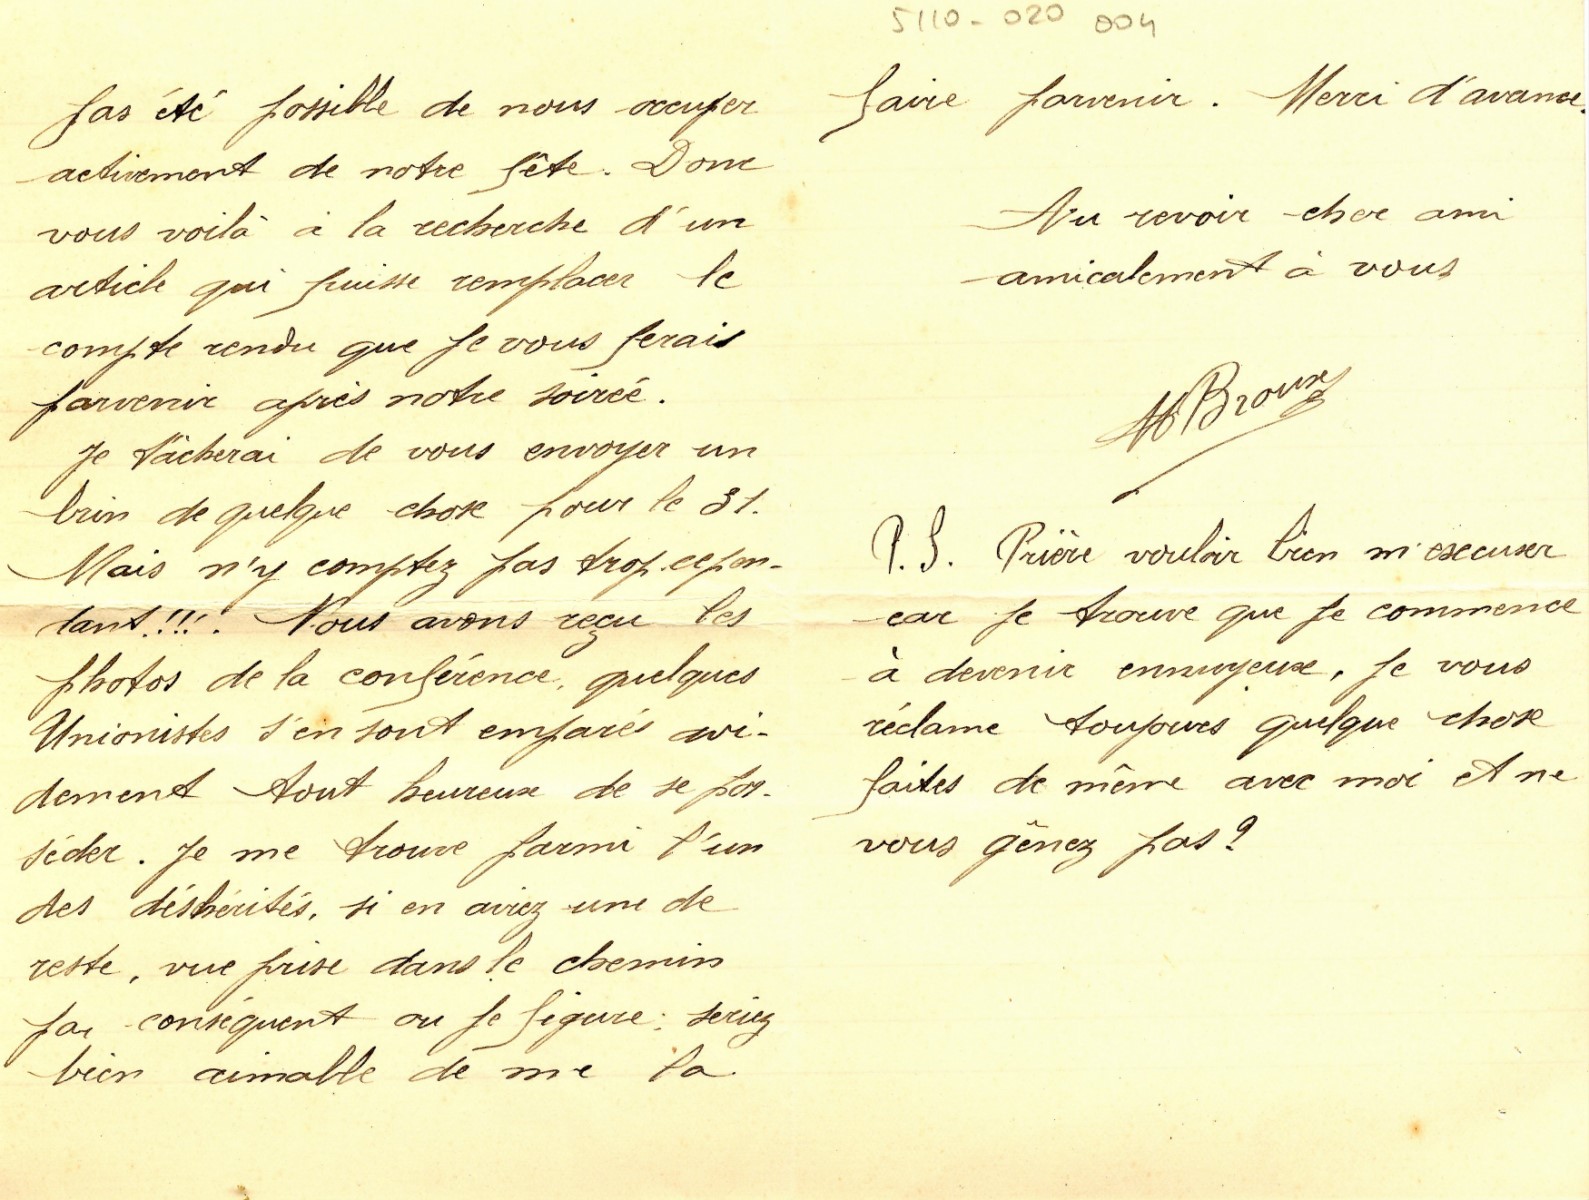 5110-020 004
pas été possible de nous occuper
activement de notre fête. Donc
vous voilà à la recherche d'un
article qui puisse remplacer le
compte rendu que je vous ferais
parvenir après notre soirée.
Je tâcherai de vous envoyer un
brin de quelque chose pour le 31.
Mais n'y comptez pas trop cepen-
tant!!!. Nous avons reçu les
photos de la conférence, quelques
Unionistes s'en sont emparés avi-
dement tout heureux de se pos-
séder. Je me trouve parmi l'un
des déshérités, si en aviez une de
reste, vue prise dans le chemin
par conséquent ou je figure; seriez
bien aimable de me la
faire parvenir. Merci d'avance.
Au revoir cher ami
amicalement à vous
Broux
P.S. Prière vouloir bien m'excuser
car je trouve que je commence
à devenir ennuyeux, je vous
réclame toujours quelque chose
faites de même avec moi et ne
vous gênez pas?